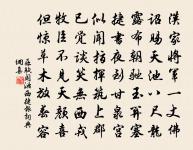 漢家將軍一丈佛
詔賜天池八尺龍
露布朝馳玉關塞
捷書夜到甘泉宮
似聞指揮築上郡
已覺談笑無西戎
牧臣不見天顏喜
但驚草木回春容
聞洮西捷報詞典網集